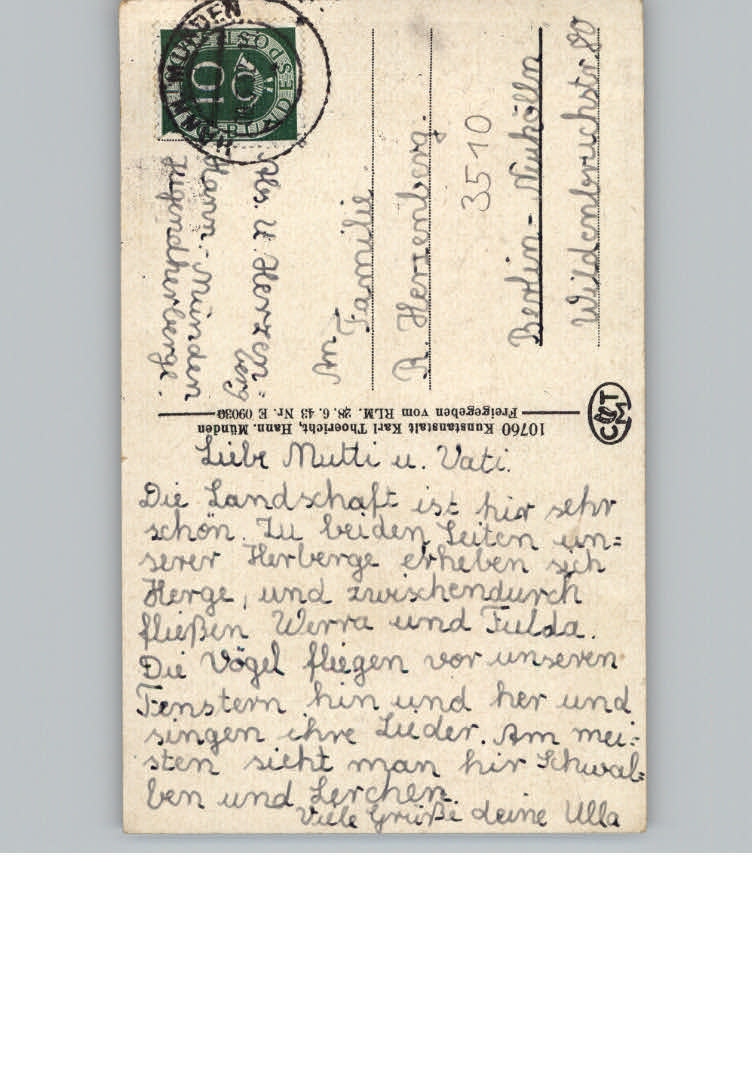 Liebe Mutti u. Vati.
Die Landschaft ist hir sehr
schön. Zu beiden Seiten un=
serer Herberge erheben sich
Herge, und zwischendurch
fließen Werra und Fulda.
Die Vögel fliegen vor unseren
Fenstern hin und her und
singen ihre Lieder. Am mei=
sten sieht man hir Schwal=
ben und Lerchen.
Viele Grüße deine Ulla
10760 Kunstanstalt Karl Thoericht, Hann. Münden
Freigegeben vom RLM. 28. 6. 43 Nr. E 09030
Abs. U. Herzen=
berg
Hann.-Münden
Jugendherberge.
An
Familie
R. Herzenberg.
3510
Berlin-Neukölln
Wildenbruchstr. 80
10
MÜNDEN